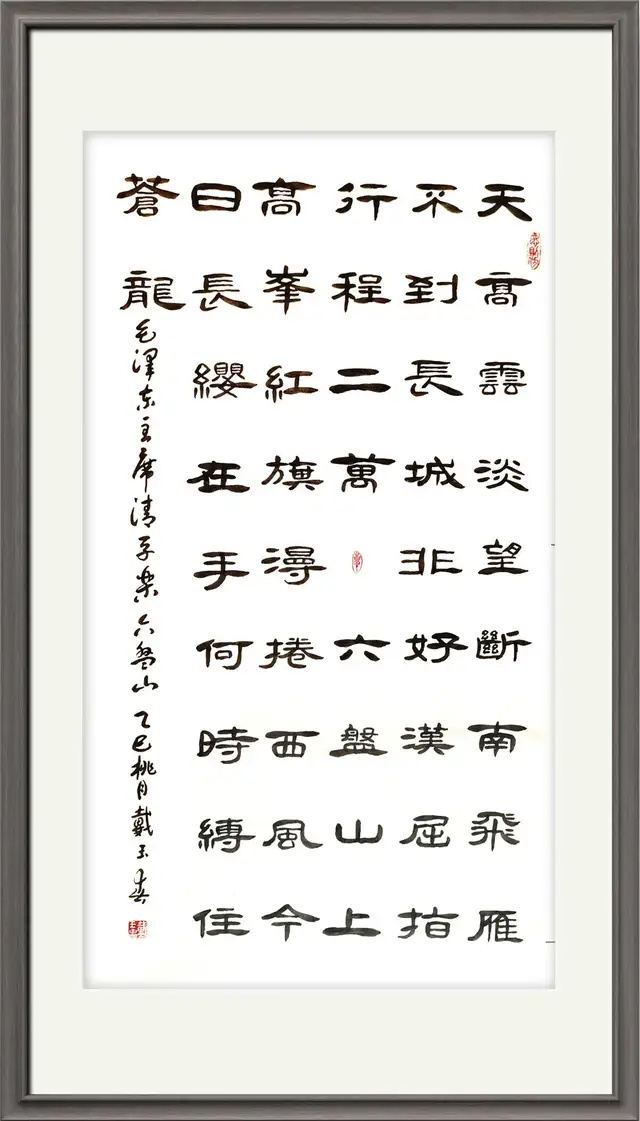 天高雲淡望斷南飛雁
不到長城非好漢屈指
行程二萬 六盤山上
高峯紅旗漫捲西風今
日長纓在手何時縛住
蒼龍
毛澤东主席清平樂六盘山 乙巳桃月戴玉春